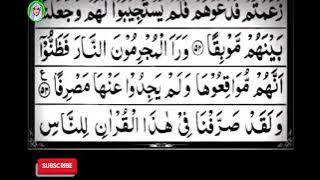 زَعَمْتُمْ فَدَعَوْهُمْ فَلَمْ يَسْتَجِيْبُوْا لَهُمْ وَجَعَلْنَا
بَيْنَهُمْ مَّوْبِقًا ۝۵۲ وَرَاَ الْمُجْرِمُوْنَ النَّارَ فَظَنُّوْۤا
اَنَّهُمْ مُّوَاقِعُوْهَا وَلَمْ يَجِدُوْا عَنْهَا مَصْرِفًا ۝۵۳
وَلَقَدْ صَرَّفْنَا فِيْ هٰذَا الْقُرْاٰنِ لِلنَّاسِ
SUBSCRIBE